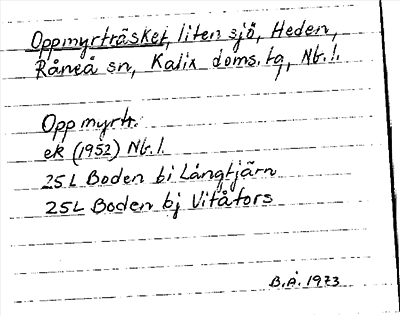 Oppmyrträsket, liten sjö, Heden,
Råneå sn, Kalix doms.tg, Nb.l.
Oppmyrtr.
ek (1952) Nb.l.
25L Boden bi Långtjärn
25L Boden bj Vitåfors
B.Å. 1973